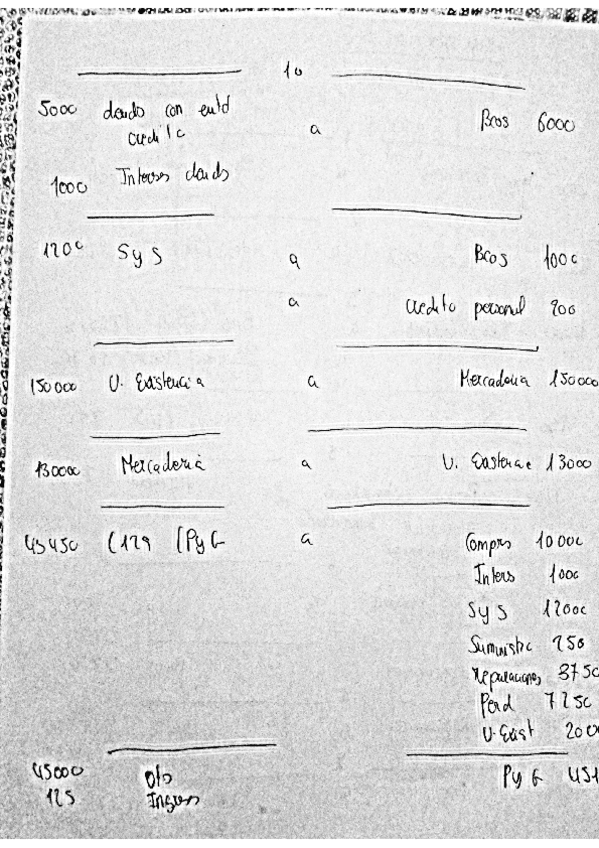 10
5000 deuda con entd
credito a Bcos 6000
1000 Intereses deuds
1200 SyS a Bcos 1000
a credito personal 200
150000 V. Existencia a Mercaderia 150000
130000 Mercaderia a V. Existencia 13000
45450 (129 (PyG a Compras 10000
Inters 1000
SyS 12000
Suministr 250
reparaciones 3750
Perd 7250
V. Exist
45000 Otos PyG 451
125 Ingresos